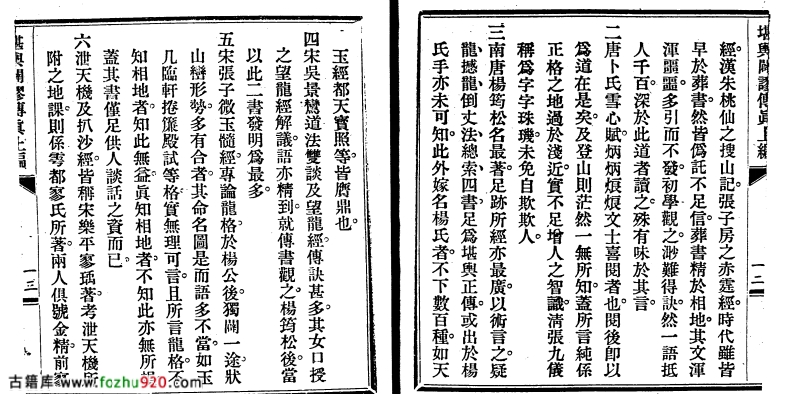 堪輿闢謬傳眞上編
一二
經漢朱桃仙之搜山記張子房之赤霆經時代雖皆
早於葬書然皆僞託不足信葬書精於相地其文渾
渾噩噩多引而不發初學觀之渺難得訣然一語抵
人千百深於此道者讀之殊有味於其言
二唐卜氏雪心賦炳炳烺烺文士喜閱者也閱後卽以
爲道在是矣及登山則茫然一無所知蓋所言純係
正格之地過於淺近實不足增人之智識淸張九儀
稱爲字字珠璣未免自欺欺人
三南唐楊筠松名最著足跡所經亦最廣以術言之疑
龍撼龍倒丈法總索四書足爲堪輿正傳或出於楊
氏手亦未可知此外嫁名楊氏者不下數百種如天
玉經都天寶照等皆贋鼎也
四宋吳景鸞道法雙談及望龍經傳訣甚多其女口授
之望龍經解議語亦精到就傳書觀之楊筠松後當
以此二書發明爲最多
五宋張子微玉髓經專論龍格於楊公後獨闢一途狀
山巒形勢多有合者其命名圖是而語多不當如玉
几臨軒捲簾殿試等格實無理可言且所言龍格不
知相地者知此無益眞知相地者不知此亦無所損
蓋其書僅足供人談話之資而已
六泄天機及扒沙經皆稱宋樂平廖瑀著考泄天機所
附之地課則係雩都廖氏所著兩人俱號金精前
堪輿闢謬傳眞上編
一三
古籍库 www.fozhu920.com